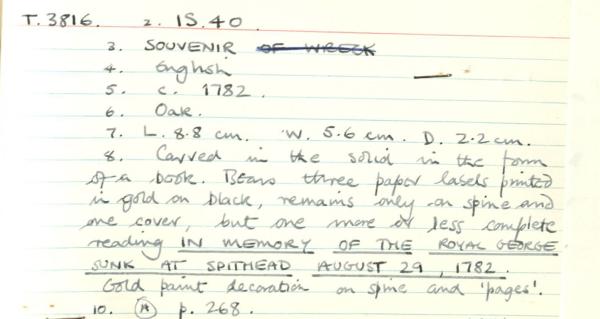 T.3816. 2. IS.40
3. SOUVENIR OF WRECK
4. English
5. c. 1782.
6. Oak.
7. L. 8.8 cm. W. 5.6 cm. D. 2.2 cm.
8. Carved in the solid in the form
of a book. Bears three paper labels printed
in gold on black, remains only on spine and
one cover, but one more or less complete
reading IN MEMORY OF THE ROYAL GEORGE
SUNK AT SPITHEAD AUGUST 29, 1782.
Gold paint decoration on spine and 'pages'.
10. (A) p. 268.